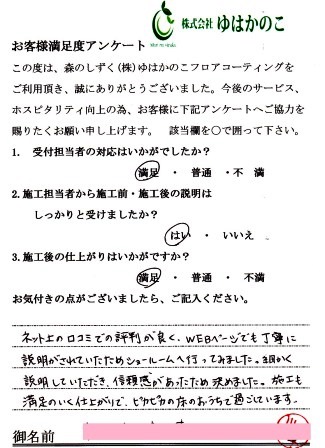 株式会社 ゆはかのこ
お客様満足度アンケート
この度は、森のしずく(株)ゆはかのこフロアコーティングを
ご利用頂き、誠にありがとうございました。今後のサービス、
ホスピタリティ向上の為、お客様に下記アンケートへご協力を
賜りたくお願い申し上げます。 該当欄を○で囲って下さい。
1. 受付担当者の対応はいかがでしたか?
満足 ・ 普通 ・不 満
2.施工担当者から施工前・施工後の説明は
しっかりと受けましたか?
はい ・ いいえ
3.施工後の仕上がりはいかがですか?
満足 ・ 普通 ・ 不満
お気付きの点がございましたら、ご記入ください。
ネット上の口コミでの評判が良く、WEBページでも丁寧に
説明がされていたためショールームへ行ってみました。細かく
説明していただき、信頼感があったため決めました。施工も
満足のいく仕上がりで、ピカピカの床のおうちで過ごしています。
御名前